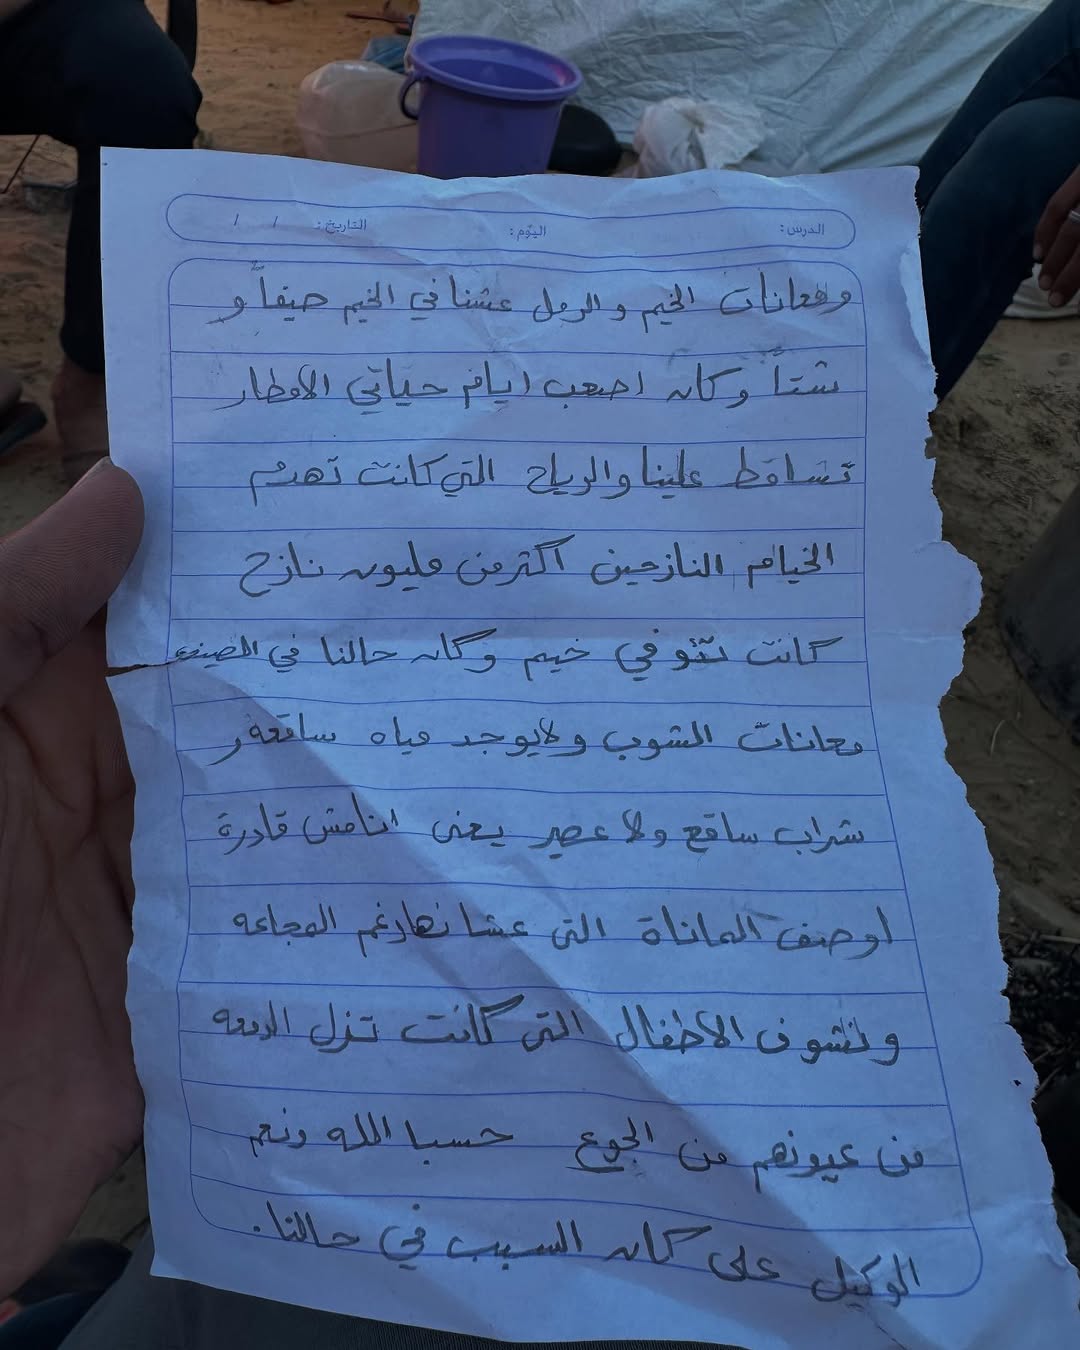 الدرس: اليوم: التاريخ: / /
ومعانات الخيم والرمل عشنا في الخيم صيفاً و
شتاً وكان اصعب ايام حياتي الامطار
تساقط علينا والرياح التي كانت تهدم
الخيام النازحين اكثر من مليون نازح
كانت في خيم وكان حالنا في الصيف
معانات الشوب ولايوجد مياه ساقعه و
شراب ساقع ولا عصير يعني انا مش قادرة
اوصف الماناة التي عشا نهارغم المجاعه
ونشوف الاطفال التي كانت تنزل الدمعه
من عيونهم من الجوع حسبا الله ونعم
الوكيل على كان السبب في حالنا.